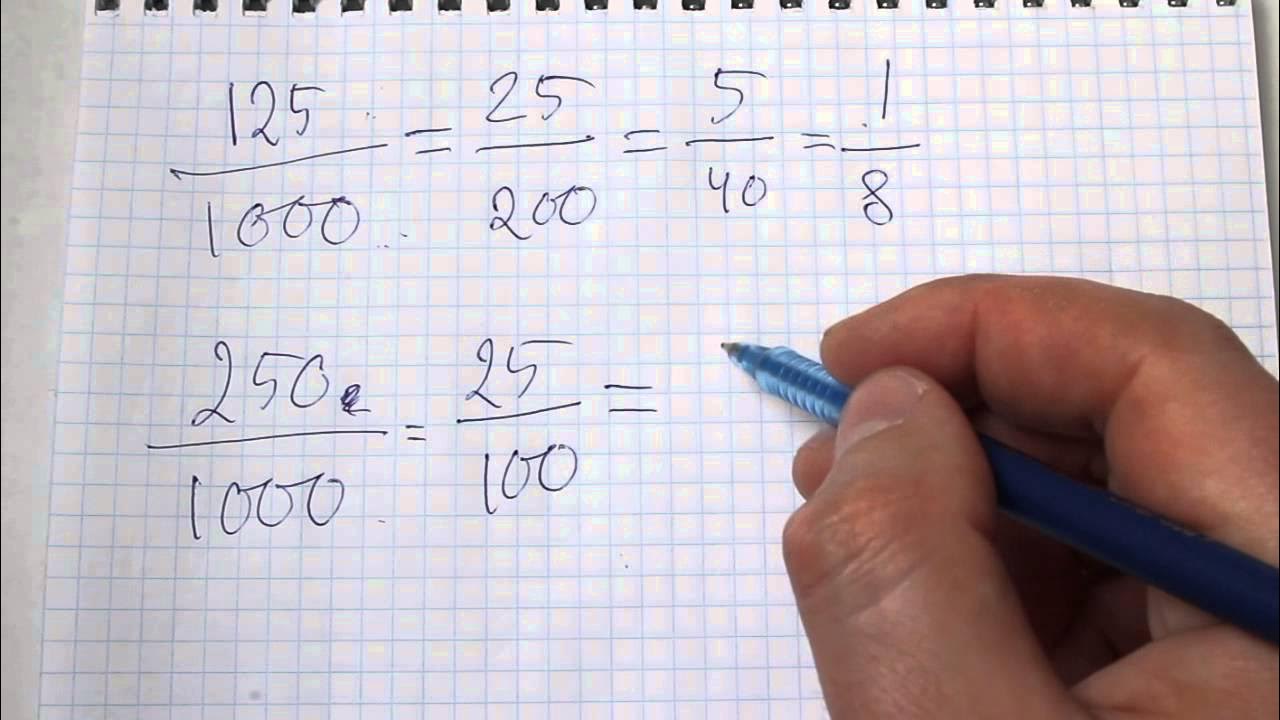 125/1000 = 25/200 = 5/40 = 1/8
250/1000 = 25/100 =